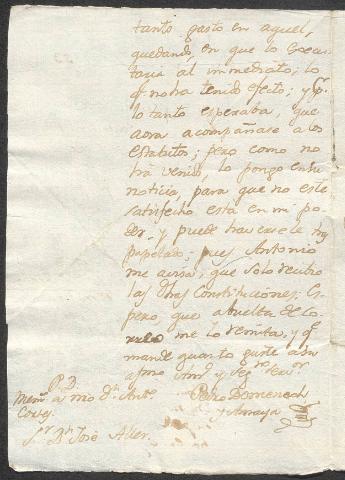 tanto gasto en aquel,
quedando, en que lo Execu-
taria al immediato; lo
q̃ no ha tenido efecto; y p.r
lo tanto esperaba, que
aora acompañase a los
estatutos; pero como no
há venido, lo pongo en su
noticia, para que no esté
satisfecho está en mi po-
der, y puede
papelado; pues Antonio
me avisa, que solo recibio
las dhas Constituciones. Es-
pero, que a buelta de Co-
rreo me lo remita, y q.e
mande quanto guste a su
afmo Am.o y Seg.ro Ser.or
Pedro Domenech
y Amaya
P. D.
Mem.s a mio d.n Ant.o
S.r D.n José Alier.